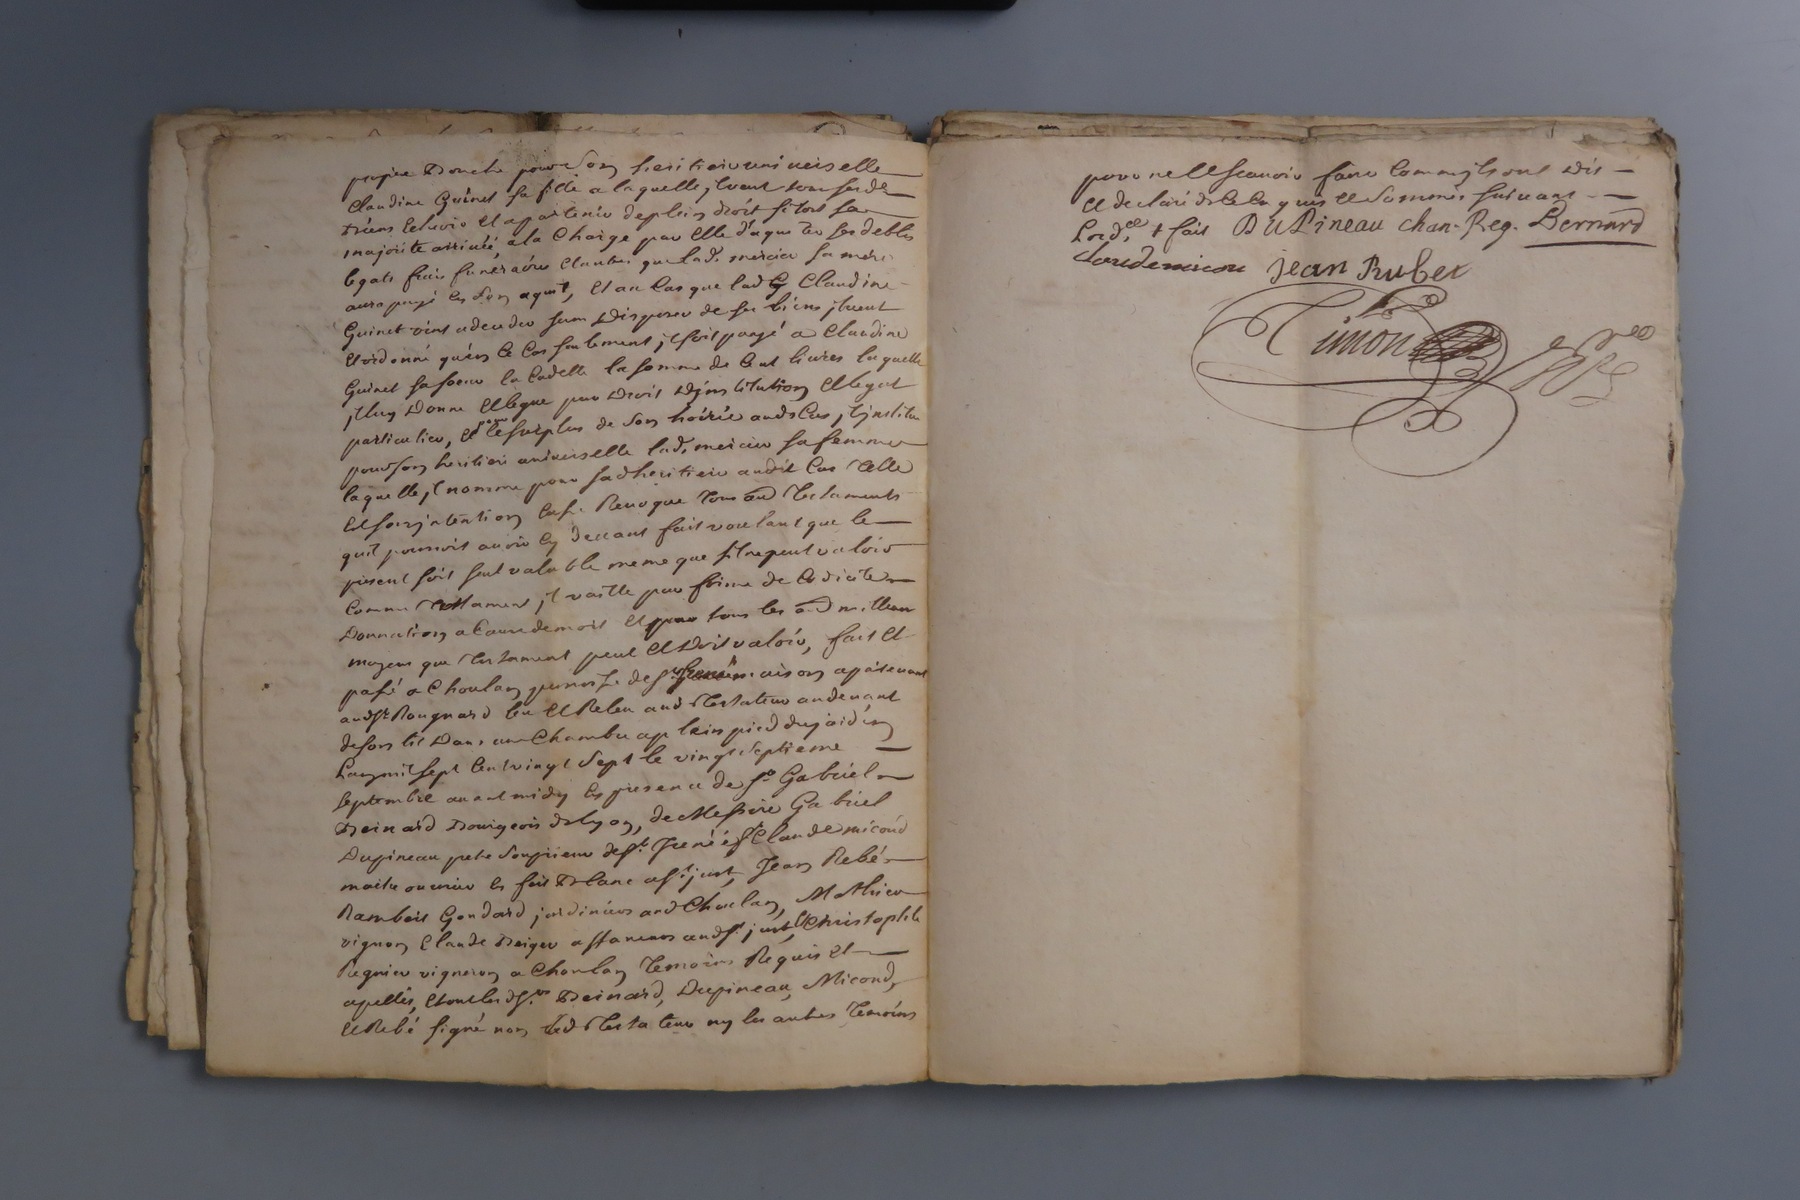 propre Bouche pour Son heritiere universelle
Claudine Guinet sa fille a laquelle jl veut tous sesd.
Biens Echeoir et apartenir de plein droit sitost sa
majorité arrivée, a la Charge par elle d'aquiter ses debtes
legats frais funeraires et autres que lad. mercier sa mere
aura payé en son aquit, et au Cas que lad. Claudine
Guinet vint a deceder sans Disposer de ses biens jl veut
et ordonne qu'en ce Cas seulement jl soit payé a Claudine
Guinet sa soeur la Cadette la somme de Cent livres laquelle
jl luy Donne et legue par Droit Djnstitution et legat
particulier, et pour le surplus de son hoirie aud. Cas jl jnstitue
pour son heritiere universelle lad. mercier sa femme
laquelle jl nomme pour sad. heritiere audit Cas telle
est son jntention Cass. Revoque tous aud Testaments
quil pourroit avoir cy devant fait voulant que le
present soit seul valable meme que sil ne peut valoir
Comme Testament jl vaille par forme de Codicile
Donnation a Cause de mort et par tous les aud meilleurs
moyens que Testament peut et Doit valoir, fait et
passé a Choulan paroisse de St. Irenée maison apartenant
aud. Sr. Rougnard leu et Releu aud Testateur au devant
de son lit Dans une Chambre a plein pied du jardin
L'an mil sept Cent vingt sept le vingt septieme
septembre avant midy en presence de Sr. Gabriel
Bernard Bourgeois de lyon, de Messire Gabriel
Dupineau prete Souprieur de St. Jrenée, Sr. Claude micoud
maitre ouvrier en soie Blanc a St. just, Jean Rebé
Rambert Gondard jardiniers aud Choulan, Mathieu
vignon Claude Berger affaneurs aud St. just, et Christophle
Regnier vigneron a Choulan Temoins Requis et
apellés, et ont lesd. Srs. Bernard, Dupineau, Micoud,
et Rebé signé non led Testateur ny les autres Temoins
pour ne le Scavoir faire Comme jls ont Dit
et declaré de ce Enquis et Sommés suivant
Lord.ce + fait DuPineau chan. Reg. Bernard
Claude micou jean Rubex
Timon